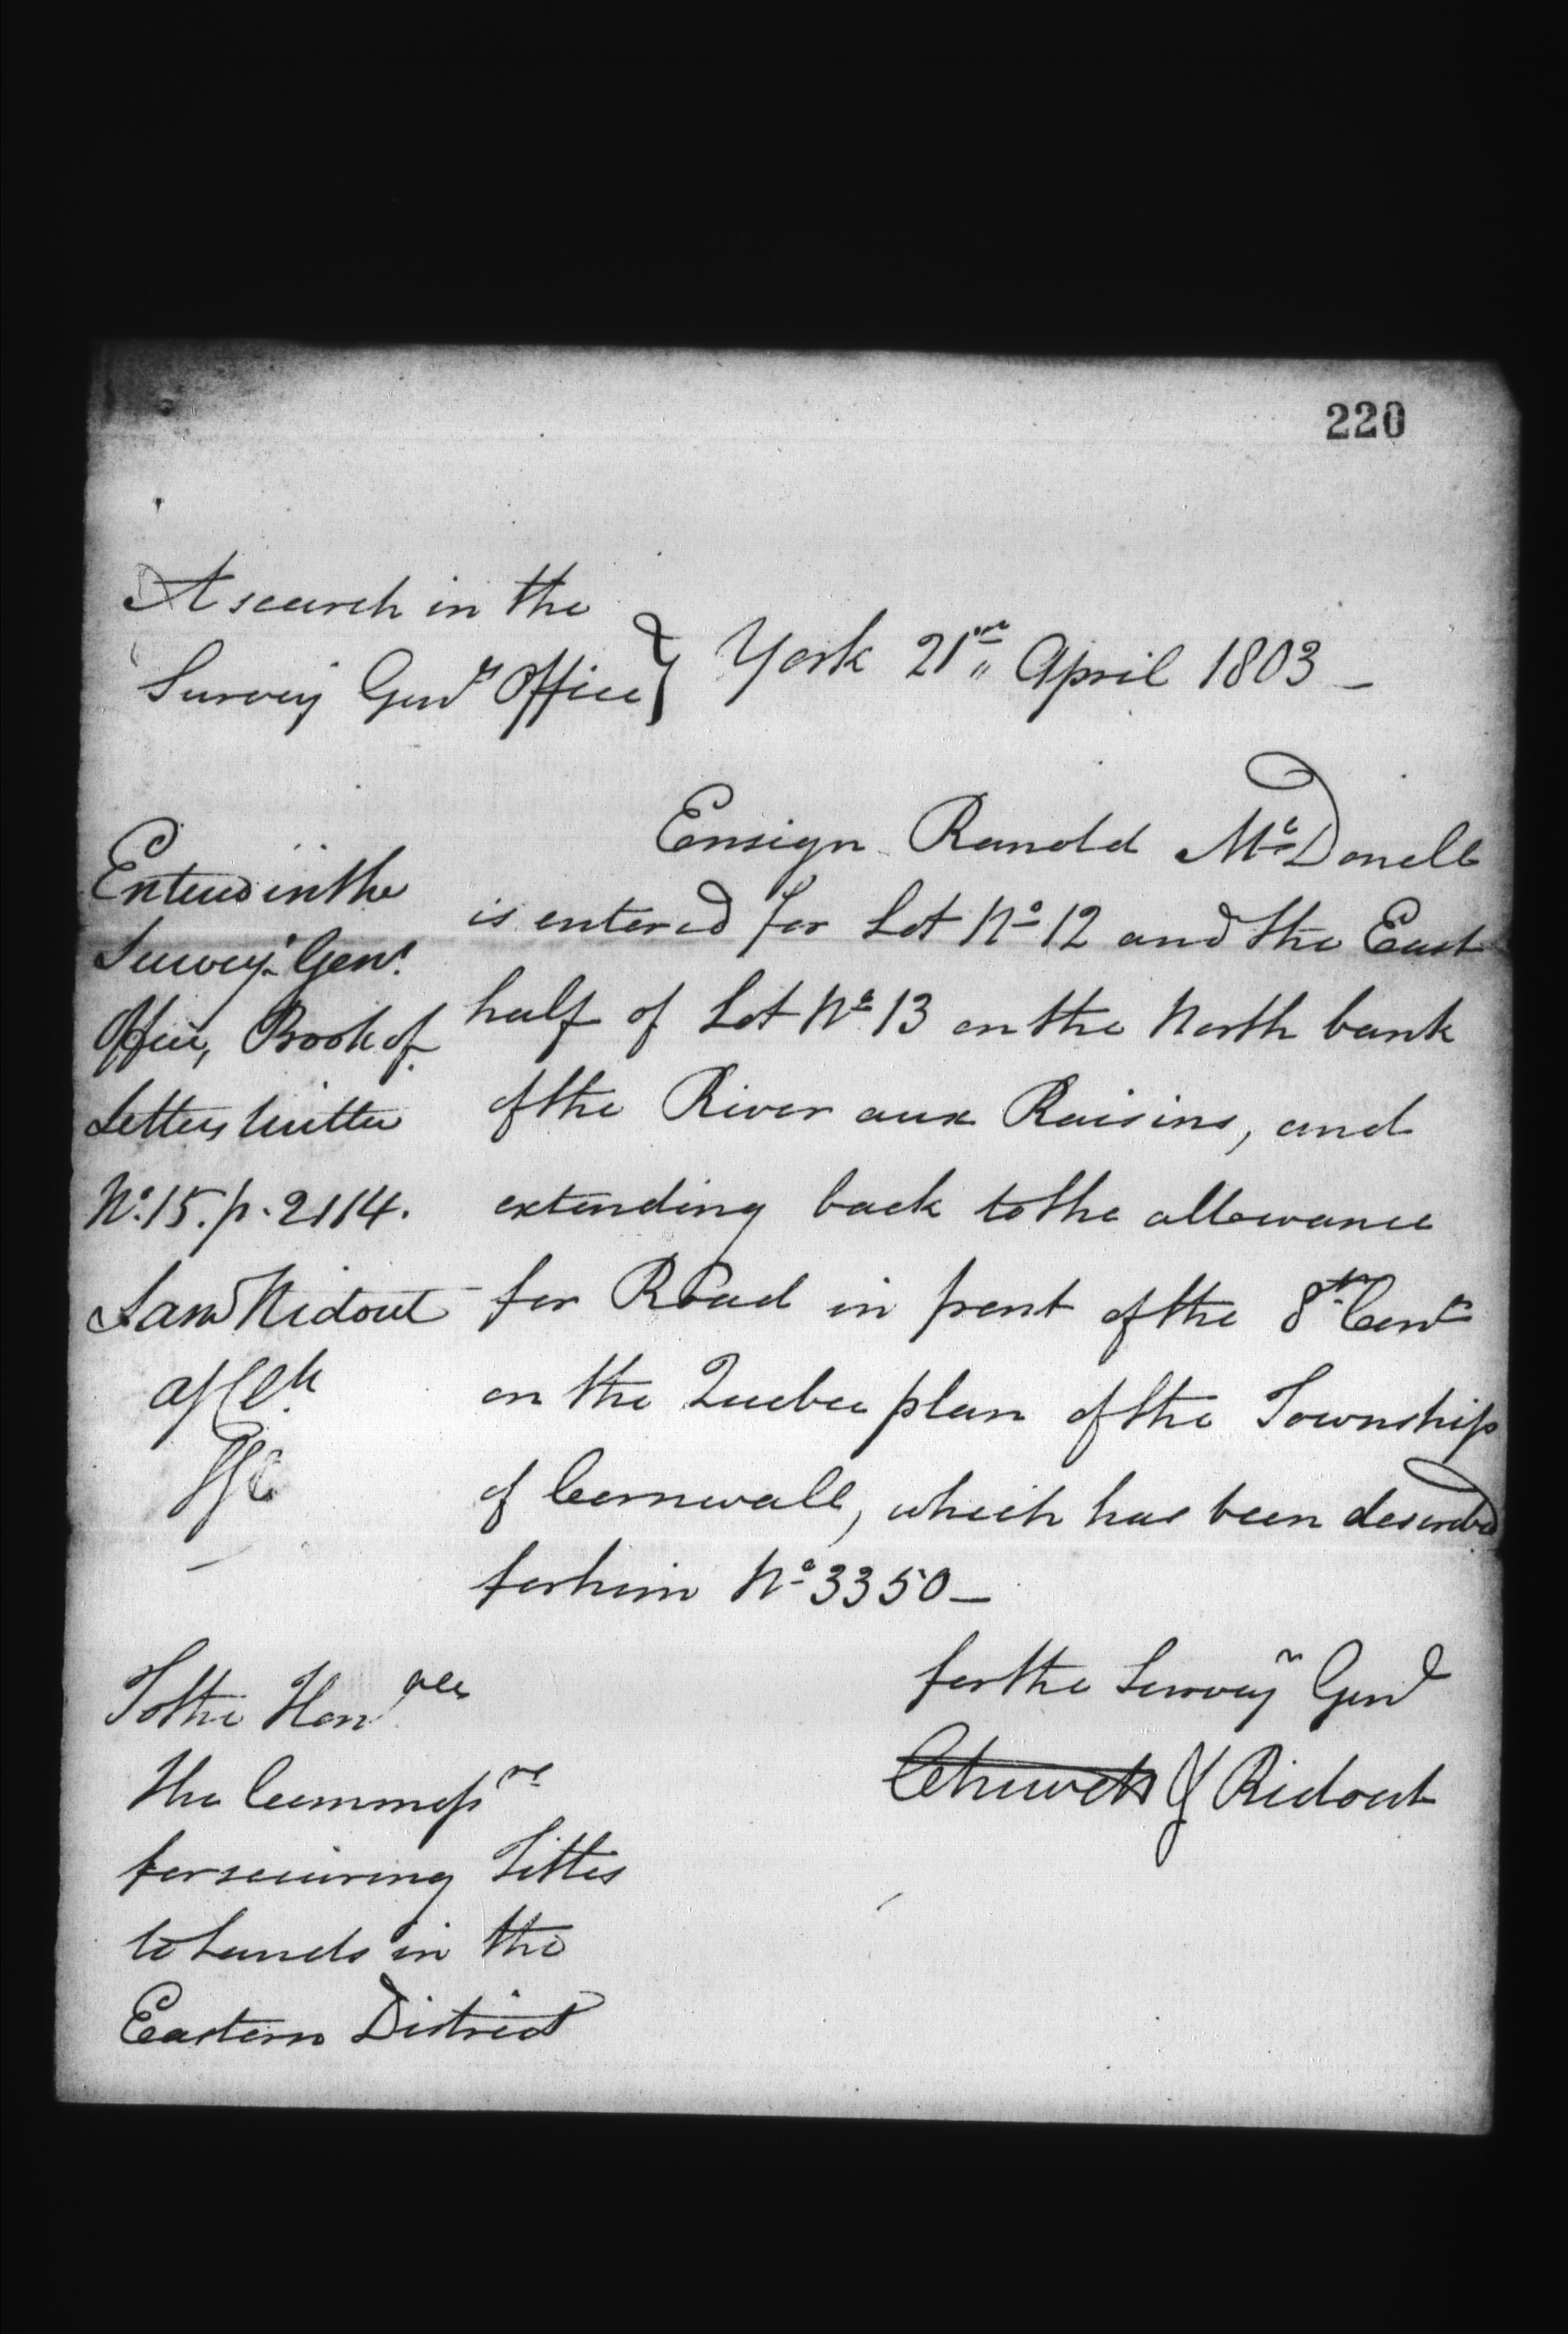 220
A search in the
Survey Genls Office } York 21st April 1803 —
Ensign Ranold McDonell
is entered for Lot No 12 and the East
half of Lot No 13 on the North bank
of the River aux Raisins, and
extending back to the allowance
for Road in front of the 8th Conn
on the Quebec plan of the Township
of Cornwall, which has been described
for him No 3350 —
Entered in the
Survey Genl
Office, Book of
Letters Written
No. 15. p. 2114.
Saml Ridout
for the Surveyr Genl
Chewett & Ridout
To the Honables
the Commissrs
for securing Titles
to Lands in the
Eastern District